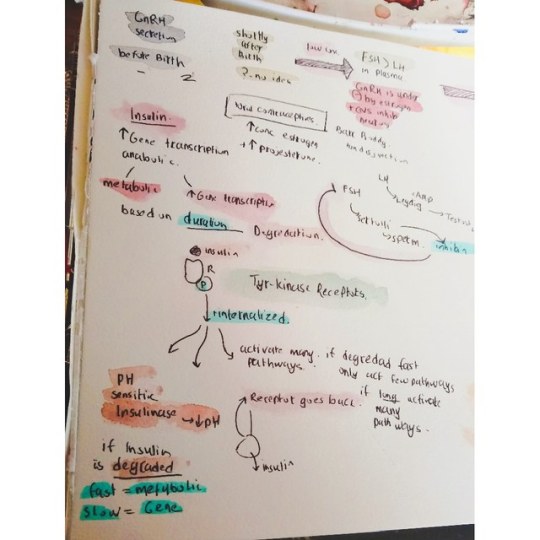 GnRH
secretion
before Birth
shortly
after
Birth
? - no idea
low conc
FSH > LH
in plasma
GnRH is under
by estrogen
Oral contraceptives
↑ conc estrogen
+ ↑ progesterone.
Insulin
↑ Gene transcription
anabolic.
metabolic
↑ Gene transcription
based on duration
Degredation.
FSH
LH
Leydig
cAMP
sertolli
sperm.
inhibin
insulin
R
P
Tyr-kinase Receptors.
internalized
activate many
pathways.
if degreded fast
only act few pathways
if long activate
many
pathways.
PH
sensitic
Insulinase → ↓ pH
Receptor goes back.
insulin
if Insulin
is degraded
fast = metabolic
slow = Gene